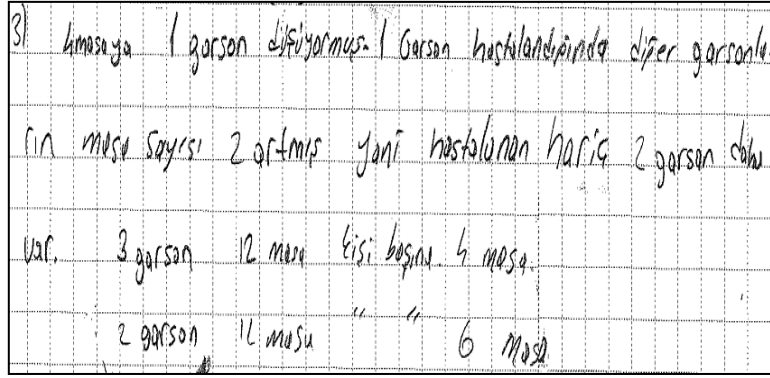 3) 4 masaya 1 garson düşüyormuş. 1 Garson hastalandığında diğer garsonla
rın masa sayısı 2 artmış yani hastalanan hariç 2 garson daha
var. 3 garson 12 masa kişi başına 4 masa.
2 garson 12 masa " " 6 masa